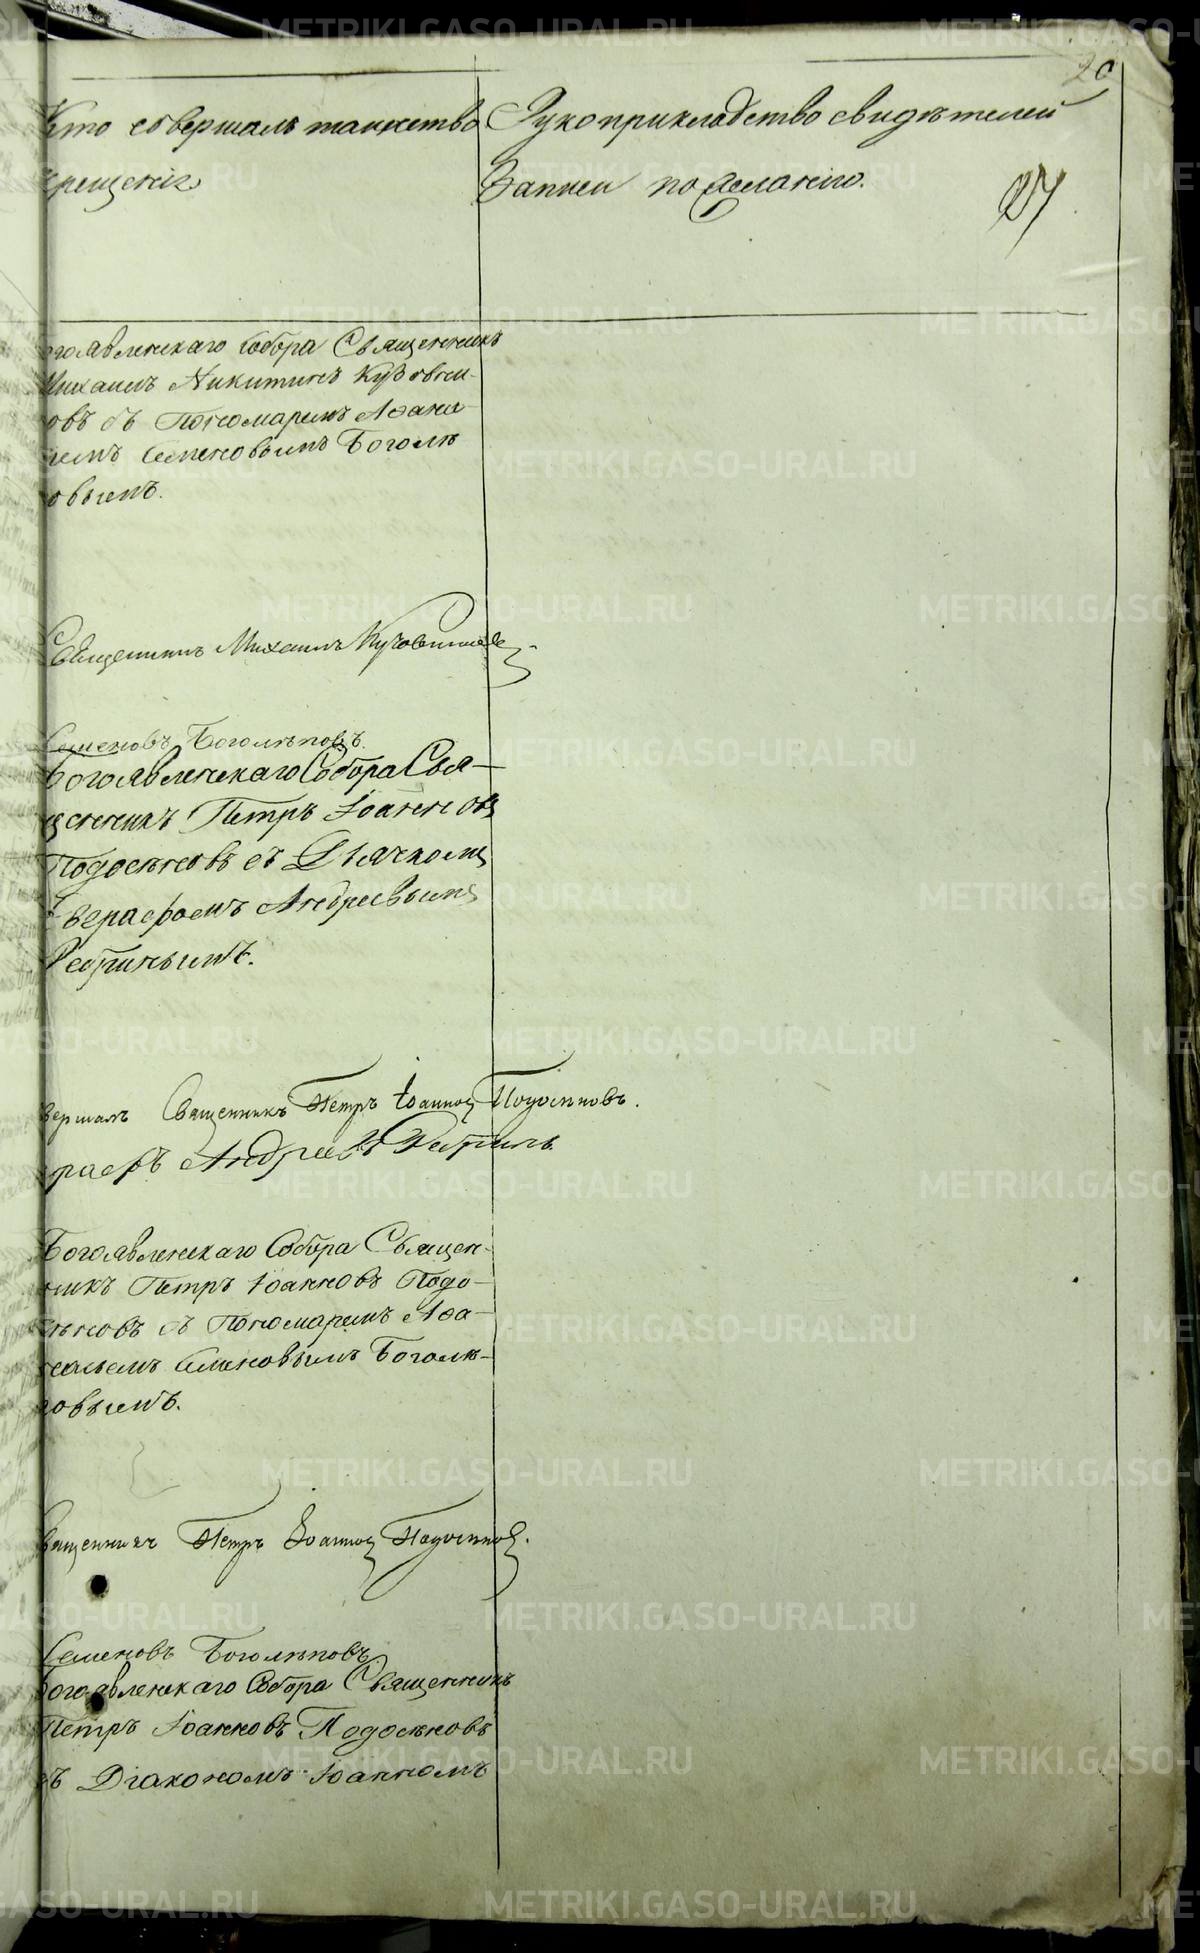 20
Кто совершалъ таинство Рукоприкладство свидѣтелей
крещенія Записи по желанію.
27
огоявленскаго Собора Священникъ
Михаилъ Никитинъ Кузовни-
овъ съ Пономаремъ Афана
емъ Семеновымъ Боголѣ
овымъ.
Священникъ Михаилъ Кузовниковъ
Семеновъ Боголѣповъ.
Богоявленскаго Собора Свя-
щенникъ Петръ Іоанновъ
Подосеновъ съ Дьячкомъ
Еверафомъ Андреевымъ
Репинымъ.
вершалъ Священникъ Петръ Іоанновъ Подосеновъ.
рафъ Андреевъ Репинъ.
Богоявленскаго Собора Священ-
никъ Петръ Іоанновъ Подо-
еновъ съ Пономаремъ Афа-
насьемъ Семеновымъ Боголѣ-
повымъ.
вященникъ Петръ Іоанновъ Подосеновъ.
Семеновъ Боголѣповъ
Богоявленскаго Собора Священникъ
Петръ Іоанновъ Подосеновъ
съ Діакономъ Іоанномъ
METRIKI.GASO-URAL.RU